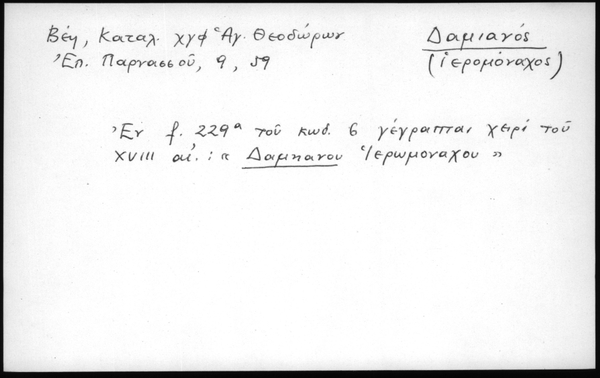 Βέη, Καταλ. χγφ Ἁγ. Θεοδώρων
Δαμιανός
Ἐπ. Παρνασσοῦ, 9, 59
(ἱερομόναχος)
Ἐν f. 229α τοῦ κωδ. 6 γέγραπται χειρὶ τοῦ
XVIII αἰ. : « Δαμηανου Ἱερωμοναχου »